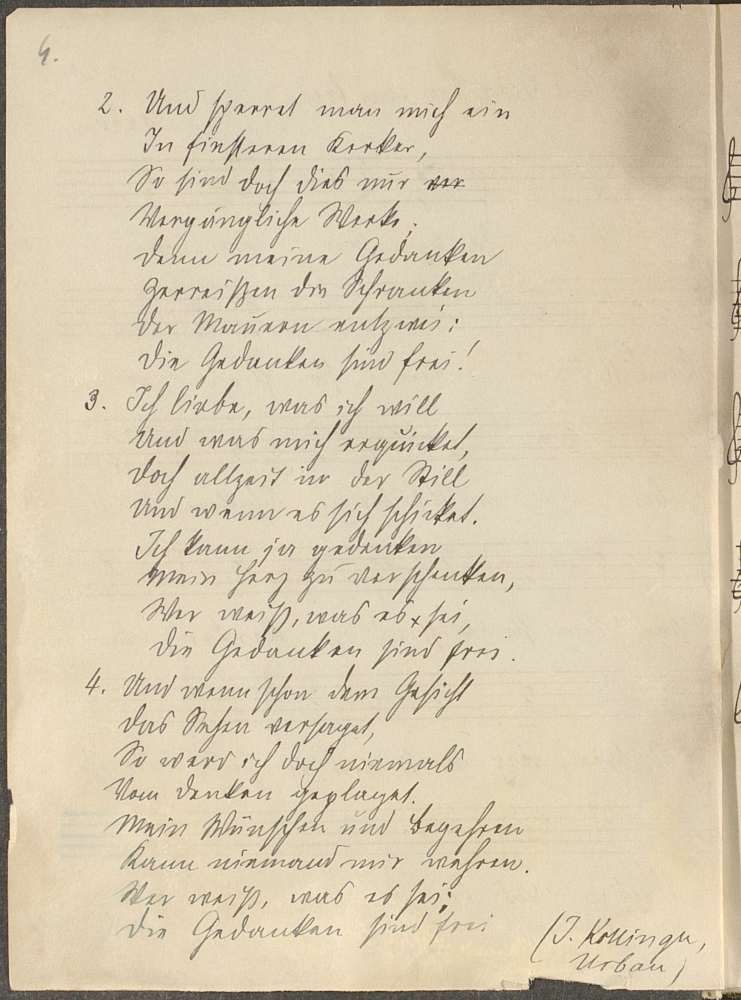 4.
2. Und sperret man mich ein
In finsteren Kerker,
So sind doch dies nur ver
Vergängliche Werke,
Denn meine Gedanken
Zerreißen die Schranken
Der Mauern entzwei:
Die Gedanken sind frei!
3. Ich liebe, was ich will
Und was mich erquicket,
Doch allzeit in der Still
Und wenn es sich schicket.
Ich kann ja gedenken
Mein Herz zu verschenken,
Wer weiß, was es sei,
Die Gedanken sind frei.
4. Und wenn schon dem Gesicht
Das Sehen versaget,
So werd ich doch niemals
Vom Denken geplaget.
Mein Wünschen und Begehren
Kann niemand mir wehren.
Wer weiß, was es sei;
Die Gedanken sind frei
(J. Kollinger,
Urban)